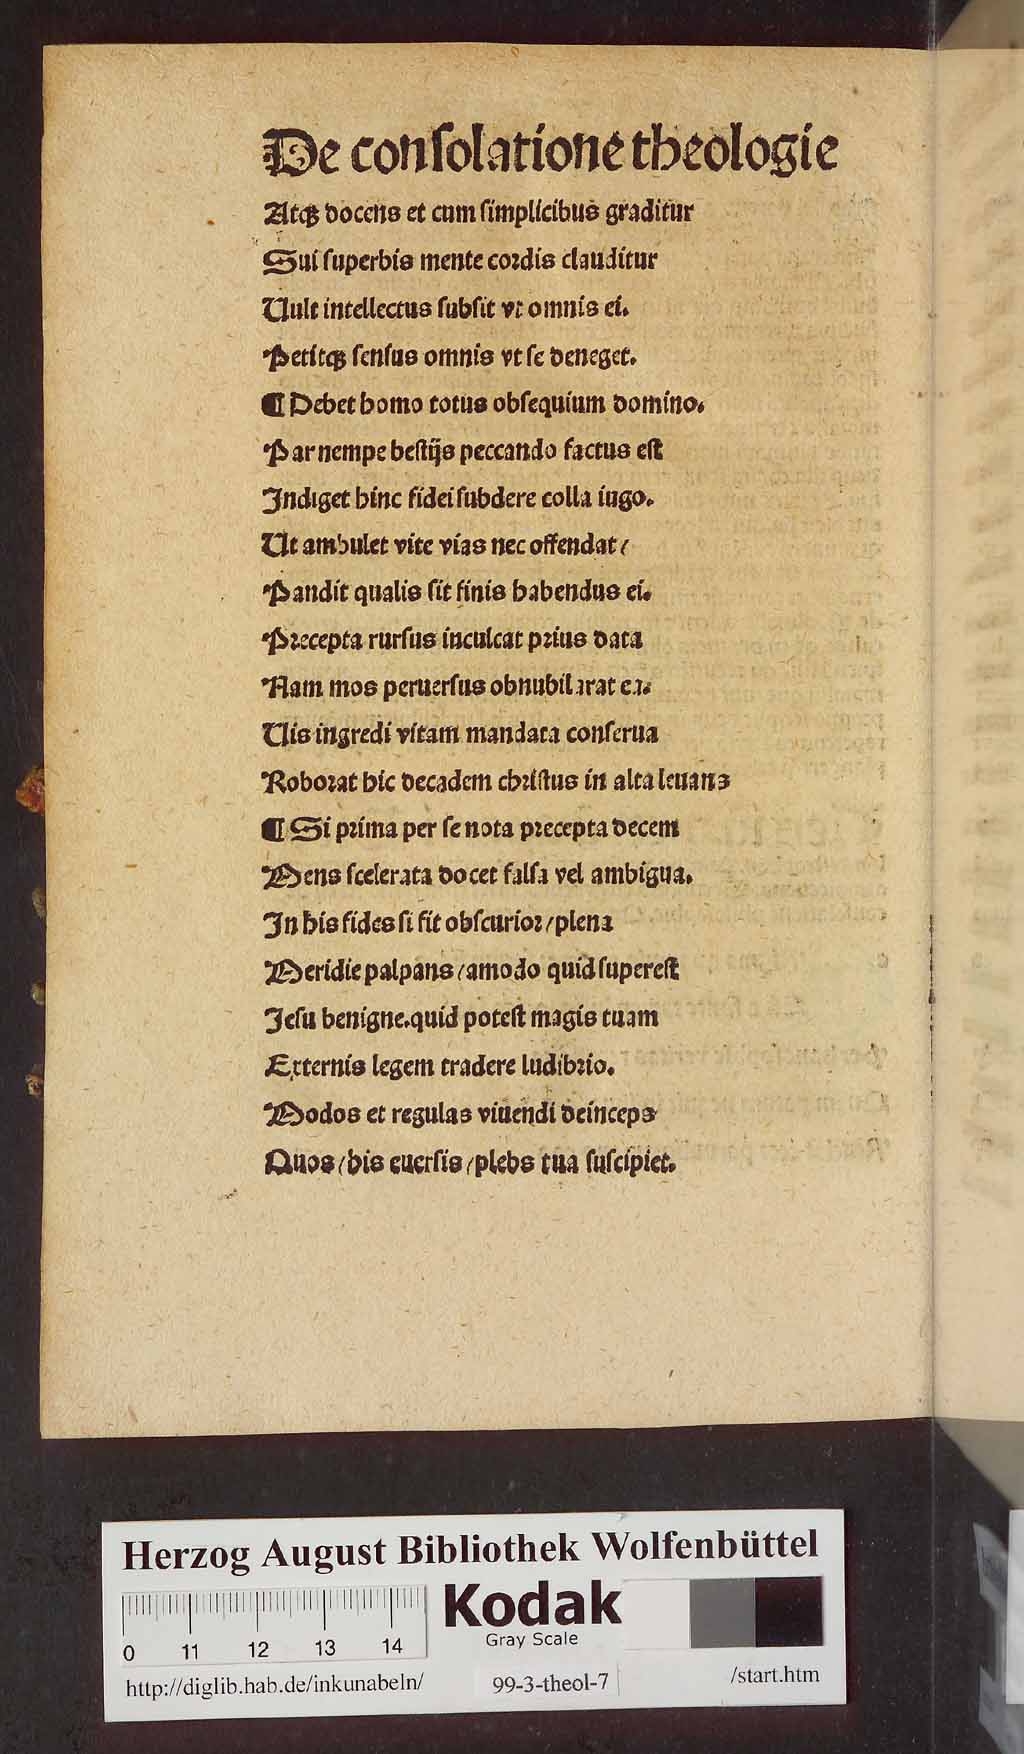 De conſolatione theologie
Atqꝫ docens et cum ſimplicibus graditur
Sui ſuperbis mente cordis clauditur
Uult intellectus ſubſit vt omnis ei.
Petitqꝫ ſenſus omnis vt ſe deneget.
¶ Debet homo totus obſequium domino.
Par nempe beſtijs peccando factus eſt
Indiget hinc fidei ſubdere colla iugo.
Ut ambulet vite vias nec offendat/
Pandit qualis ſit finis habendus ei.
Precepta rurſus inculcat prius data
Nam mos peruerſus obnubilarat ea.
Uis ingredi vitam mandata conſerua
Roborat hic decadem chriſtus in alta leuans
¶ Si prima per ſe nota precepta decem
Mens ſcelerata docet falſa vel ambigua.
In his fides ſi fit obſcurior/plena
Meridie palpans/amodo quid ſupereſt
Jeſu benigne.quid poteſt magis tuam
Externis legem tradere ludibrio.
Modos et regulas viuendi deinceps
Quos/his euerſis/plebs tua ſuſcipiet.
Herzog August Bibliothek Wolfenbüttel
Kodak
Gray Scale
0 11 12 13 14
http://diglib.hab.de/inkunabeln/ 99-3-theol-7 /start.htm